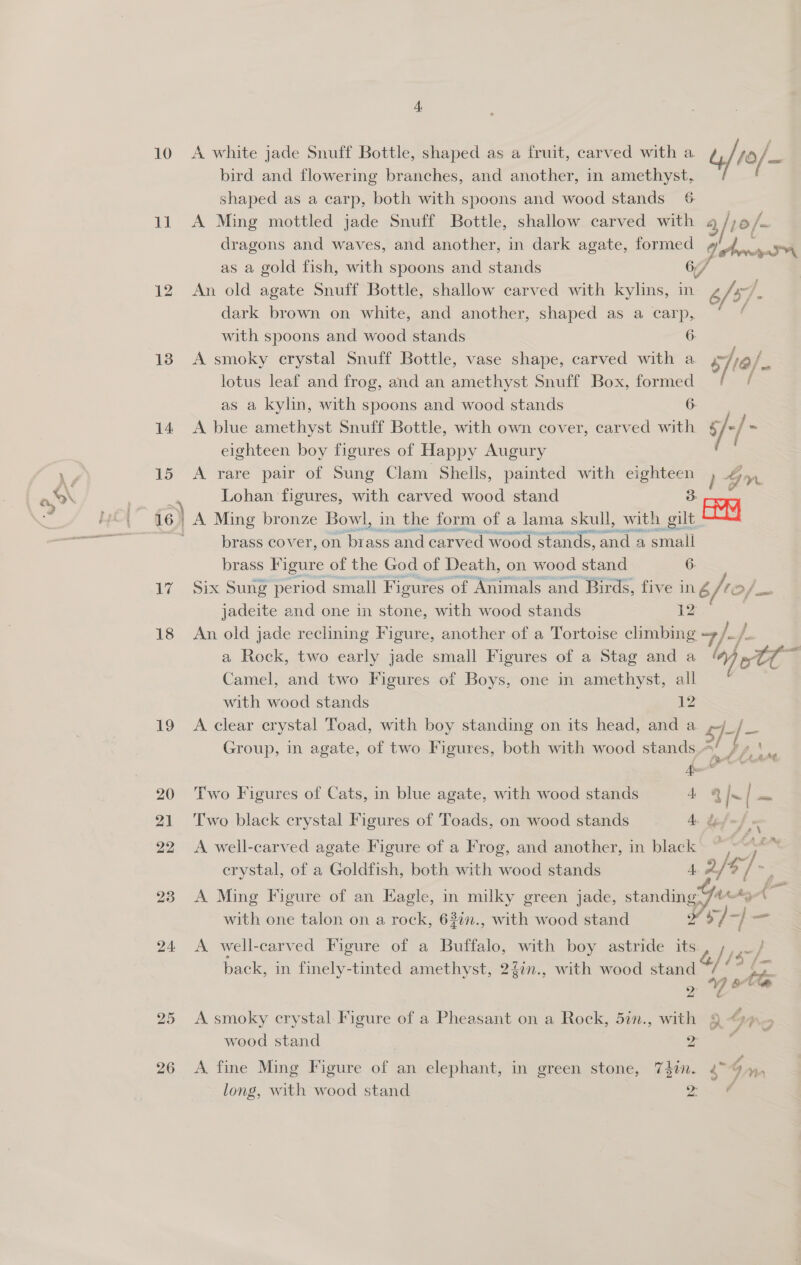 4
10 A white jade Snuff Bottle, shaped as a fruit, carved with a 4/10/-
bird and flowering branches, and another, in amethyst,
shaped as a carp, both with spoons and wood stands 6
11 A Ming mottled jade Snuff Bottle, shallow carved with 9/10/-
dragons and waves, and another, in dark agate, formed
as a gold fish, with spoons and stands 6
12 An old agate Snuff Bottle, shallow carved with kylins, in 6/5/-
dark brown on white, and another, shaped as a carp,
with spoons and wood stands 6
13 A smoky crystal Snuff Bottle, vase shape, carved with a 5/10/-
lotus leaf and frog, and an amethyst Snuff Box, formed
as a kylin, with spoons and wood stands 6
14 A blue amethyst Snuff Bottle, with own cover, carved with 5/-/-
eighteen boy figures of Happy Augury
15 A rare pair of Sung Clam Shells, painted with eighteen
Lohan figures, with carved wood stand 3
16 A Ming bronze Bowl, in the form of a lama skull, with gilt
brass cover, on brass and carved wood stands, and a small
brass Figure of the God of Death, on wood stand 6
17 Six Sung period small Figures of Animals and Birds, five in 6/10/-
jadeite and one in stone, with wood stands 12
18 An old jade reclining Figure, another of a Tortoise climbing 7/-/-
a Rock, two early jade small Figures of a Stag and a
Camel, and two Figures of Boys, one in amethyst, all
with wood stands 12
19 A clear crystal Toad, with boy standing on its head, and a 5/-/-
Group, in agate, of two Figures, both with wood stands
4
20 Two Figures of Cats, in blue agate, with wood stands 4
21 Two black crystal Figures of Toads, on wood stands 4
22 A well-carved agate Figure of a Frog, and another, in black
crystal, of a Goldfish, both with wood stands 4 2/5/-
23 A Ming Figure of an Eagle, in milky green jade, standing
with one talon on a rock, 6¾in., with wood stand 2 5/-/-
24 A well-carved Figure of a Buffalo, with boy astride its
back, in finely-tinted amethyst, 2¾in., with wood stand 4/15/-
2
25 A smoky crystal Figure of a Pheasant on a Rock, 5in., with
wood stand 2
26 A fine Ming Figure of an elephant, in green stone, 7½in.
long, with wood stand 2